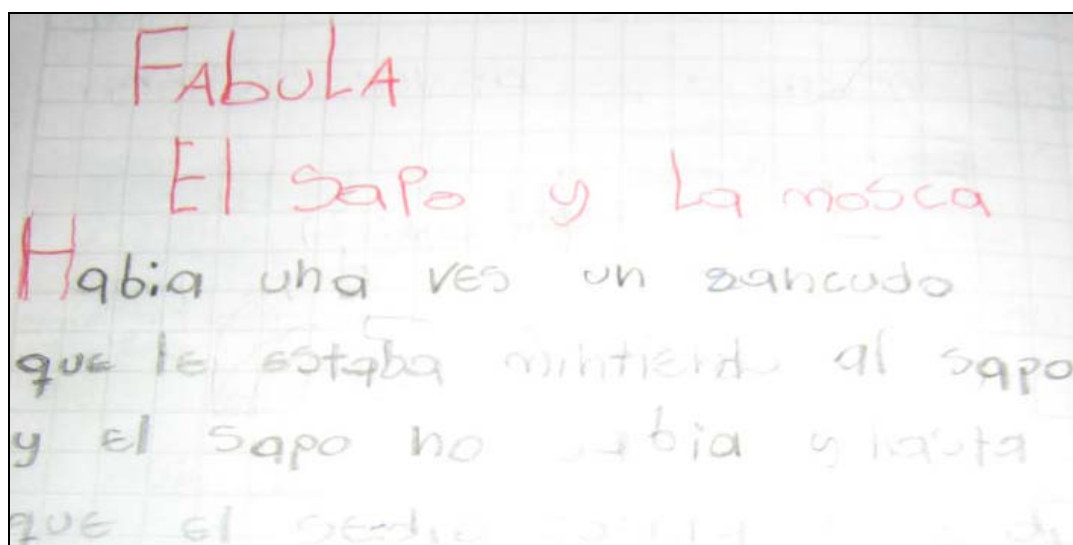 FAbULA
El SaPo y La mosca
Habia una ves un sancudo
que le estaba mintiendo al sapo
y el sapo no sabia y hasta
que el